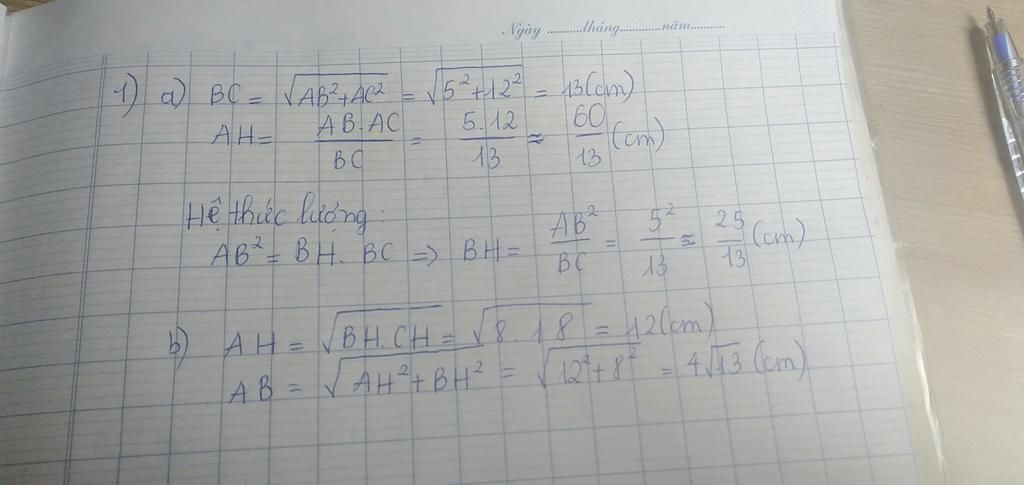 Ngày ...........tháng............năm..........
1) a) BC = √(AB²+AC²) = √(5²+12²) = 13(cm)
AH = AB.AC/BC = 5.12/13 ≈ 60/13 (cm)
Hệ thức lượng:
AB² = BH. BC => BH = AB²/BC = 5²/13 ≈ 25/13 (cm)
b) AH = √(BH.CH) = √(8.18) = 12(cm)
AB = √(AH²+BH²) = √(12²+8²) = 4√13 (cm)